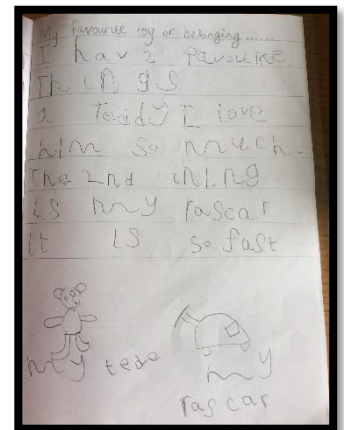 My favourite toy or belonging......
I hav 2 favourite
Things
a Teddy I love
him so much.
The 2nd thing
is my rascar
it is so fast
my tedo my
rascar